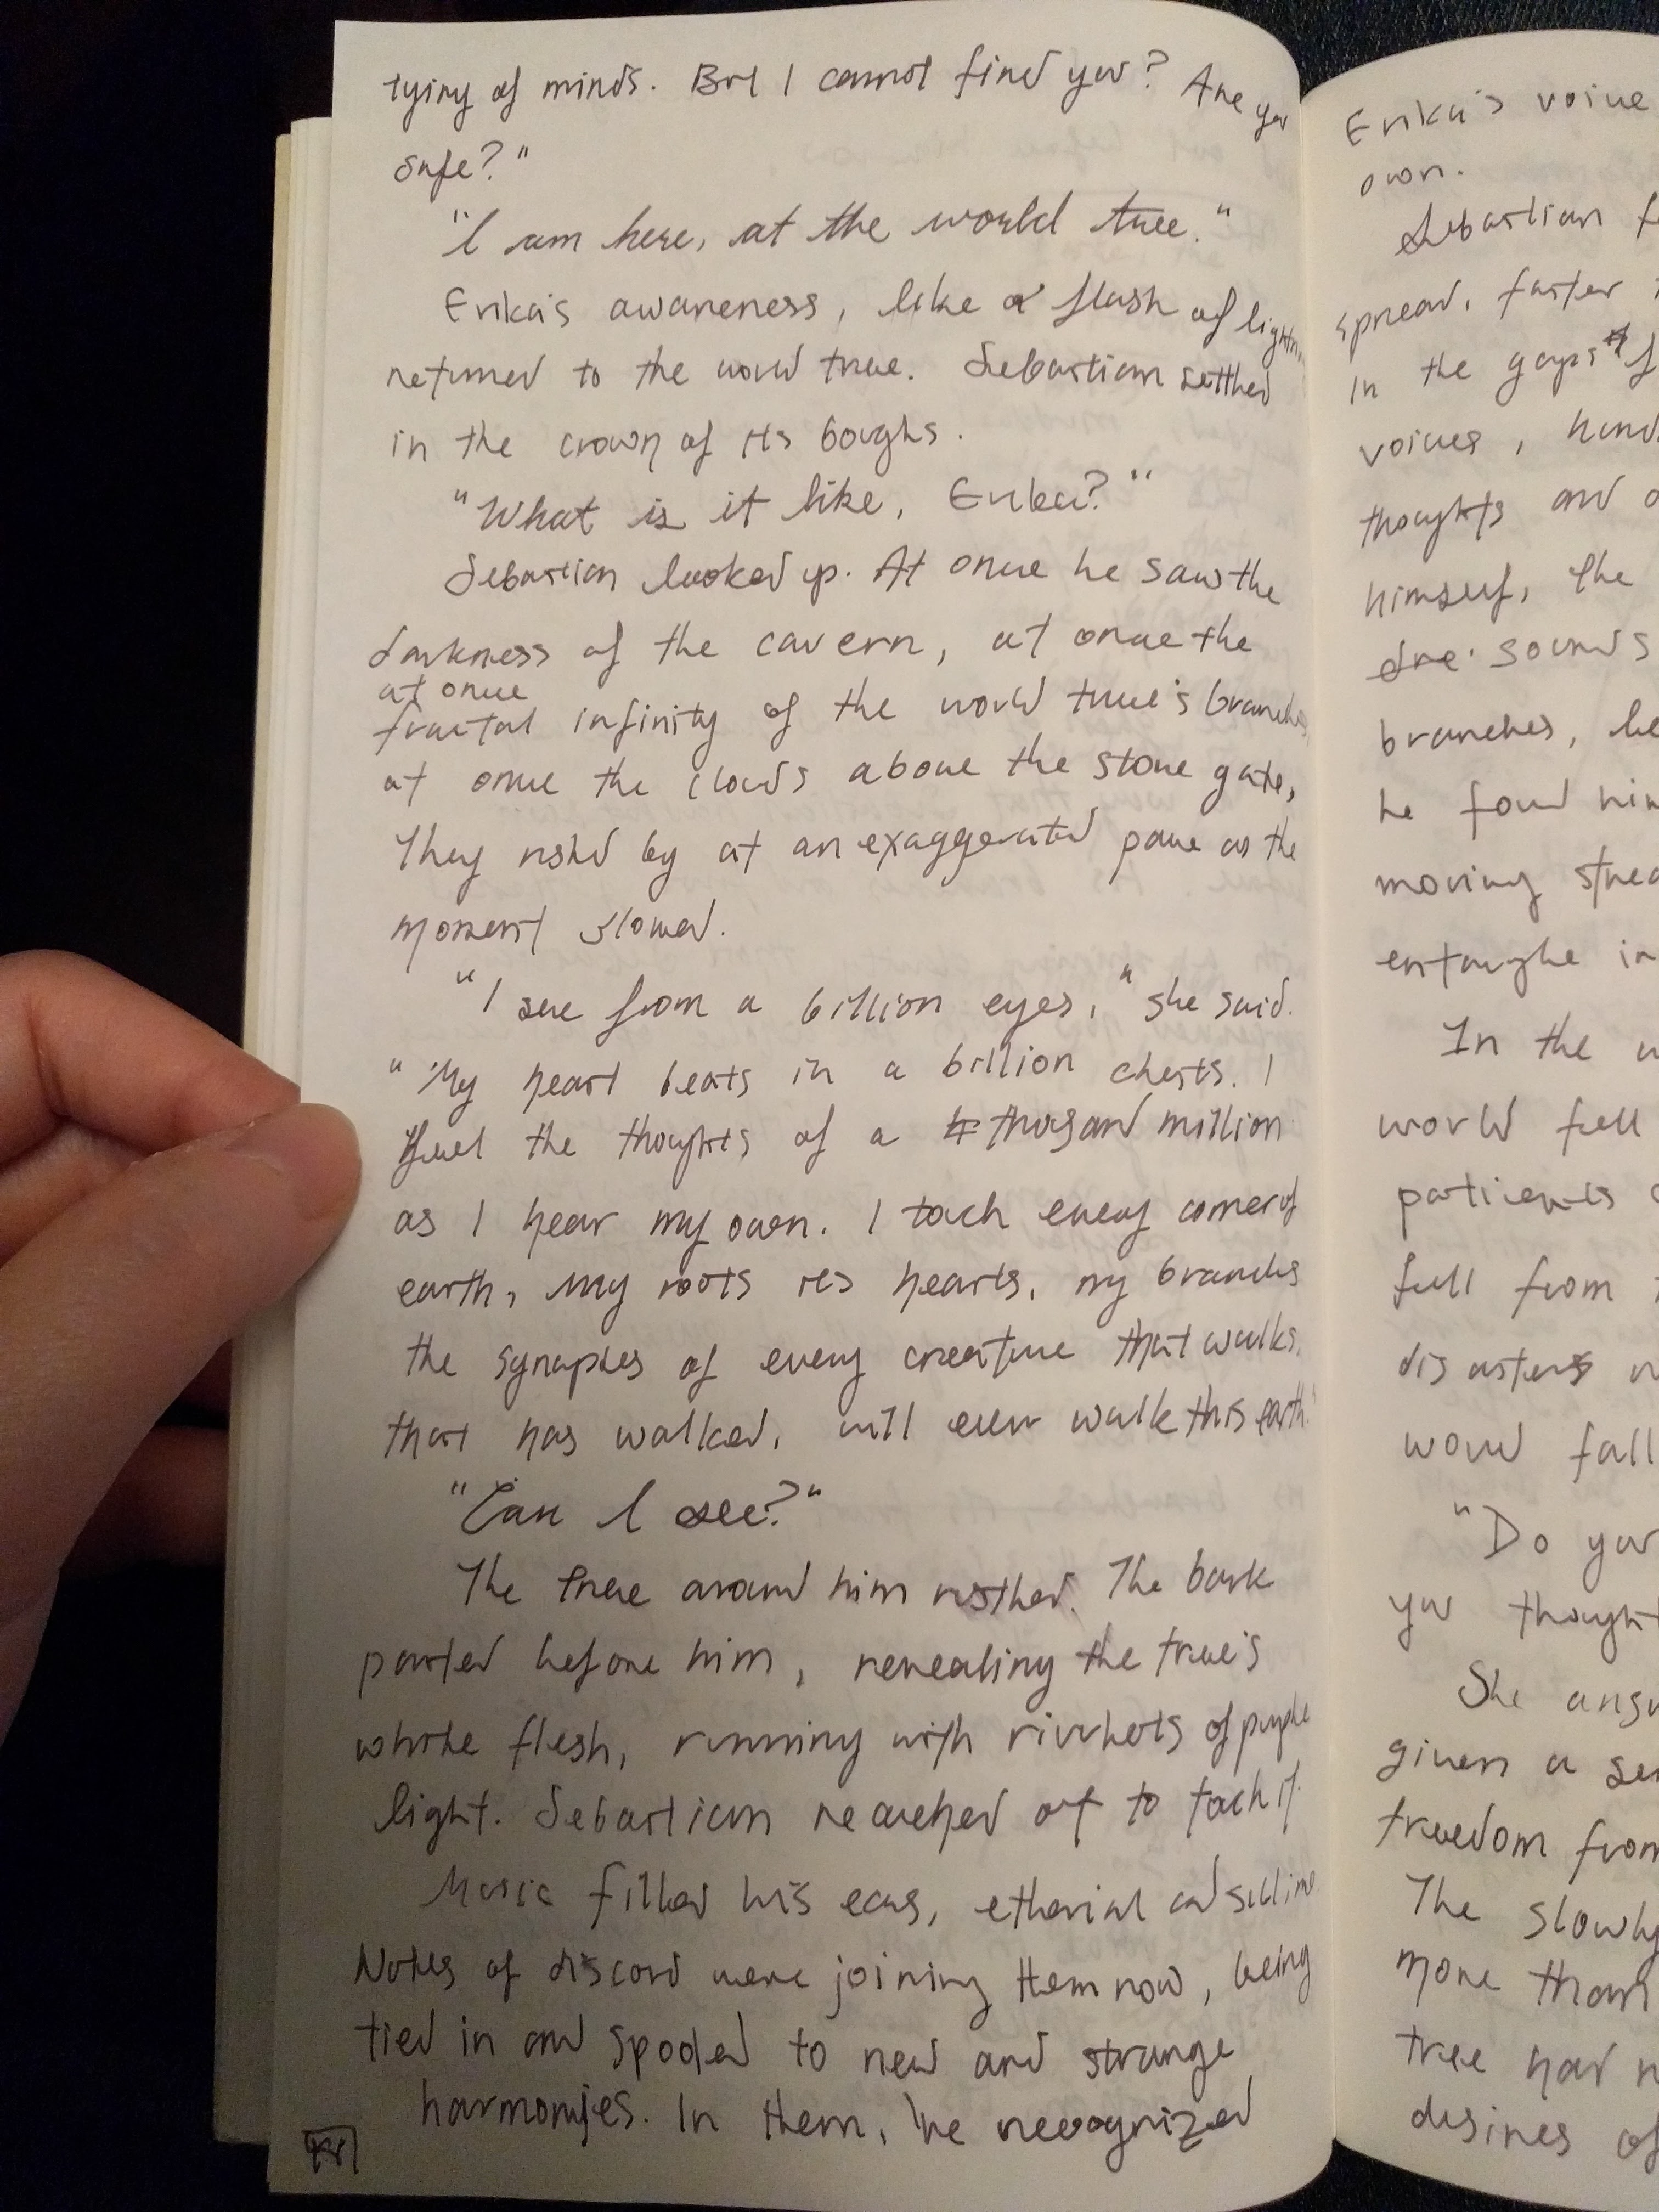 tying of minds. But I cannot find you? Are you
safe?"
"I am here, at the world tree."
Erika's awareness, like a flash of lightning
returned to the world tree. Sebastian settled
in the crown of its boughs.
"What is it like, Erika?"
Sebastian looked up. At once he saw the
darkness of the cavern, at once the
at once
fractal infinity of the world tree's branches
at once the clouds above the stone gate,
They rushed by at an exaggerated pace as the
moment slowed.
"I see from a billion eyes," she said.
"My heart beats in a billion chests. I
feel the thoughts of a thousand million
as I hear my own. I touch every corner of
earth, my roots its hearts, my branches
the synapses of every creature that walks,
that has walked, will ever walk this earth."
"Can I see?"
The tree around him rustled. The bark
parted before him, revealing the tree's
white flesh, running with rivulets of purple
light. Sebastian reached out to touch it.
Music filled his ears, etherial and sublime.
Notes of discord were joining them now, being
tied in and spooled to new and strange
harmonies. In them, he recognized
Erika's voice
own.
Sebastian
spread, faster
in the gaps of
voices,
thoughts and
himself, the
sounds
branches, he
he found him
moving
in
In the
world fell
patients
fell from
disasters
would fall
"Do you
you thought
She
given a
freedom from
The slowly
more than
tree had
desires of